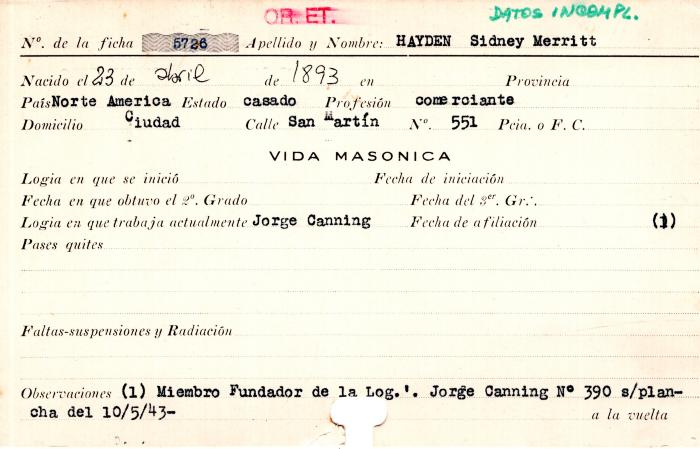 OR. ET. DATOS INCOMPL.
Nº. de la ficha 5726 Apellido y Nombre: HAYDEN Sidney Merritt
Nacido el 23 de abril de 1893 en Provincia
País Norte America Estado casado Profesión comerciante
Domicilio Ciudad Calle San Martín Nº. 551 Pcia. o F. C.
VIDA MASONICA
Logia en que se inició Fecha de iniciación
Fecha en que obtuvo el 2º. Grado Fecha del 3er. Gr∴
Logia en que trabaja actualmente Jorge Canning Fecha de afiliación (1)
Pases quites
Faltas-suspensiones y Radiación
Observaciones (1) Miembro Fundador de la Log.'. Jorge Canning Nº 390 s/plan-
cha del 10/5/43- a la vuelta